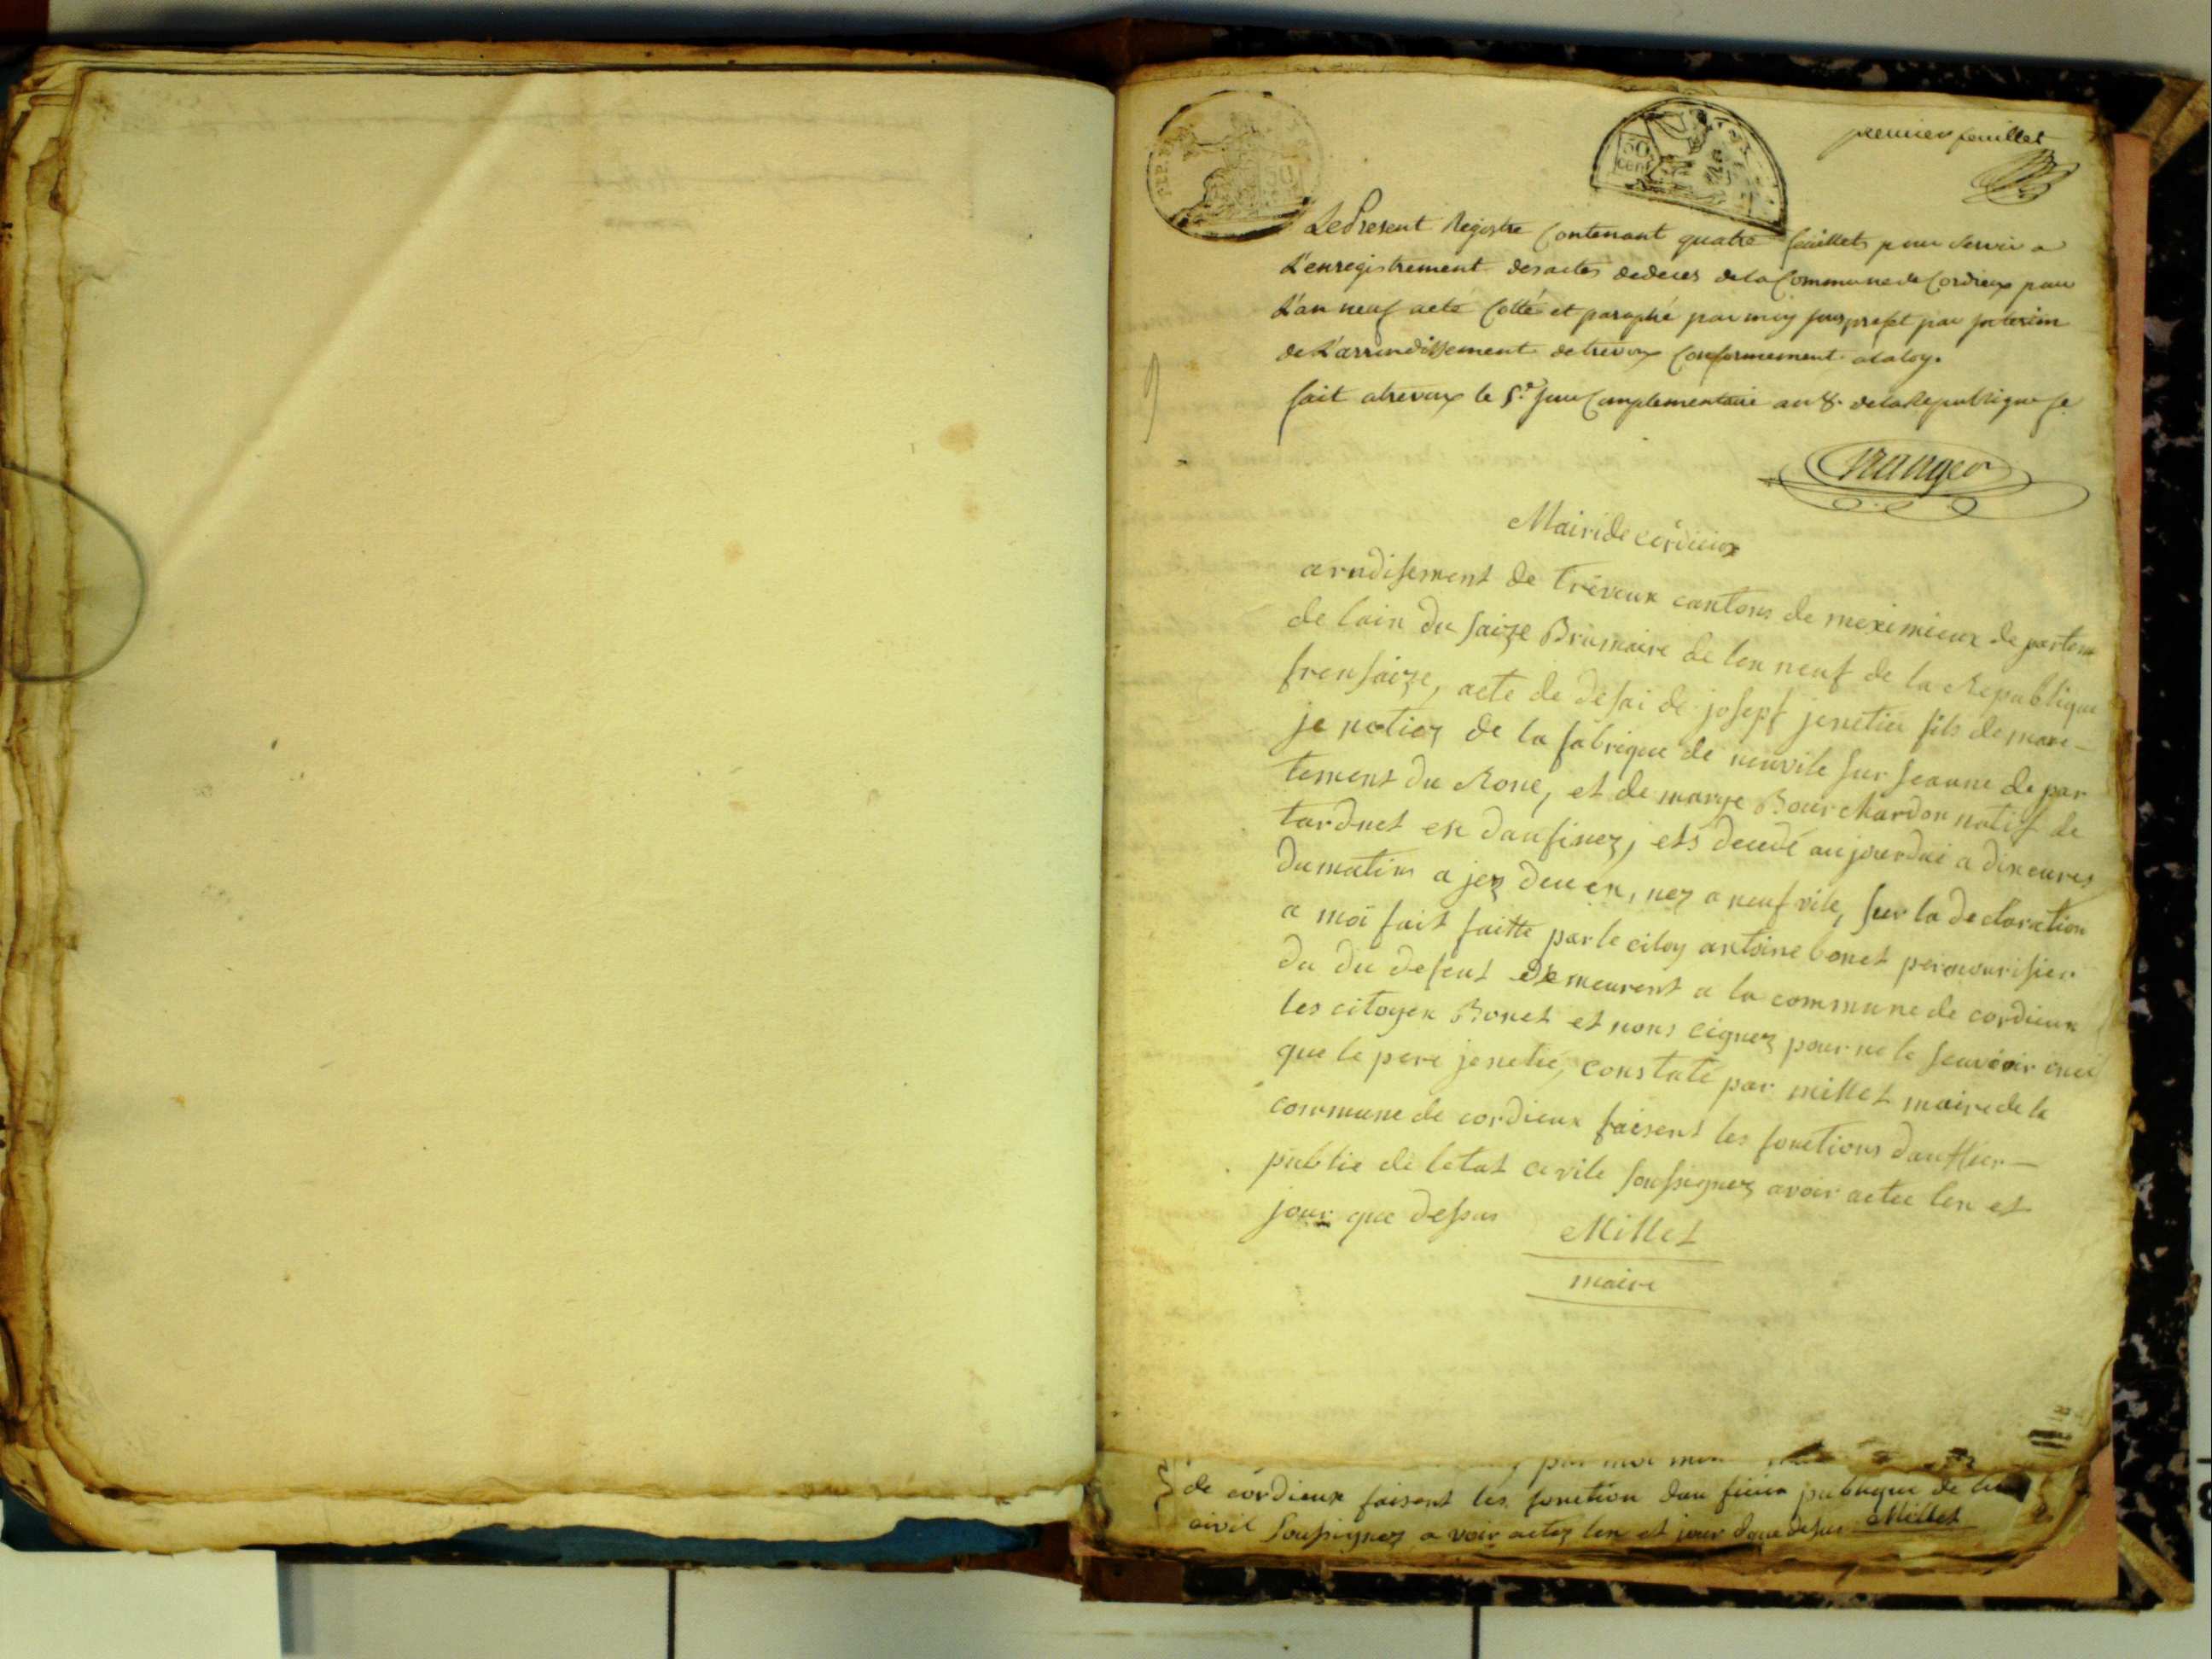 premier feuillet
50
cent
50
Le Present Registre Contenant quatre feuillets pour Servir a
L'enregistrement des actes de deces de la Commune de Cordieux pour
L'an neuf a ete Cotté et paraphé par moy sousprefet par interim
de L'arrondissement de trevoux Conformement a la loy.
fait a trevoux le 5.e jour Complementaire an 8. de la Republique fe
Mairi de cordieux
arndisement de trévoux cantons de meximieux de partem
de lain du saize Brumaire de len neuf de la Republique
fransaize, acte de desai de josepf jenetié fils de mare-
je netiez de la fabrique de neuvile sur seaune de par
tement du Rone, et de marye Bourchardon natif de
en daufinez, ets decedé aujourdui a dix eures
du matin a jez deu en, nez a neufvile, sur la declaration
a moi fait faitte par le citoy antoine bonet perenourisier
du du defeut demeurent a la commune de cordieux
les citoyen Bonet et nons cignez pour ne le seavoir
que le pere jenetié, constaté par millet maire de la
commune de cordieux faisent les fonctions daufficier
public de letat cevile soussignez avoir actee len et
jour que dessus
Millet
maire
par moi
de cordieux faisent les fonction dau ficier publique de
civil soussignez a voir actez len et jour que desus Millet